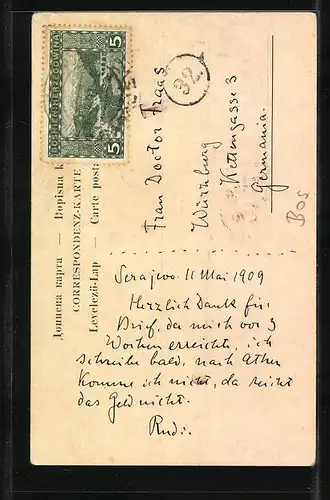 BOSNIEN-HERCEGOVINA
5 5
32.
Дописна карта — Dopisna k
CORRESPONDENZ-KARTE
Levelezö-Lap — Carte posta
Frau Doctor Fraas
Würzburg
Kettengasse 3
Germania.
Bos
Serajewo 11 Mai 1909
Herzlich Dank für
Brief, da mich vor 3
Wochen erreichte, ich
schreibe bald, nach Athen
komme ich nicht, da reicht
das Geld nicht.
Rudi.